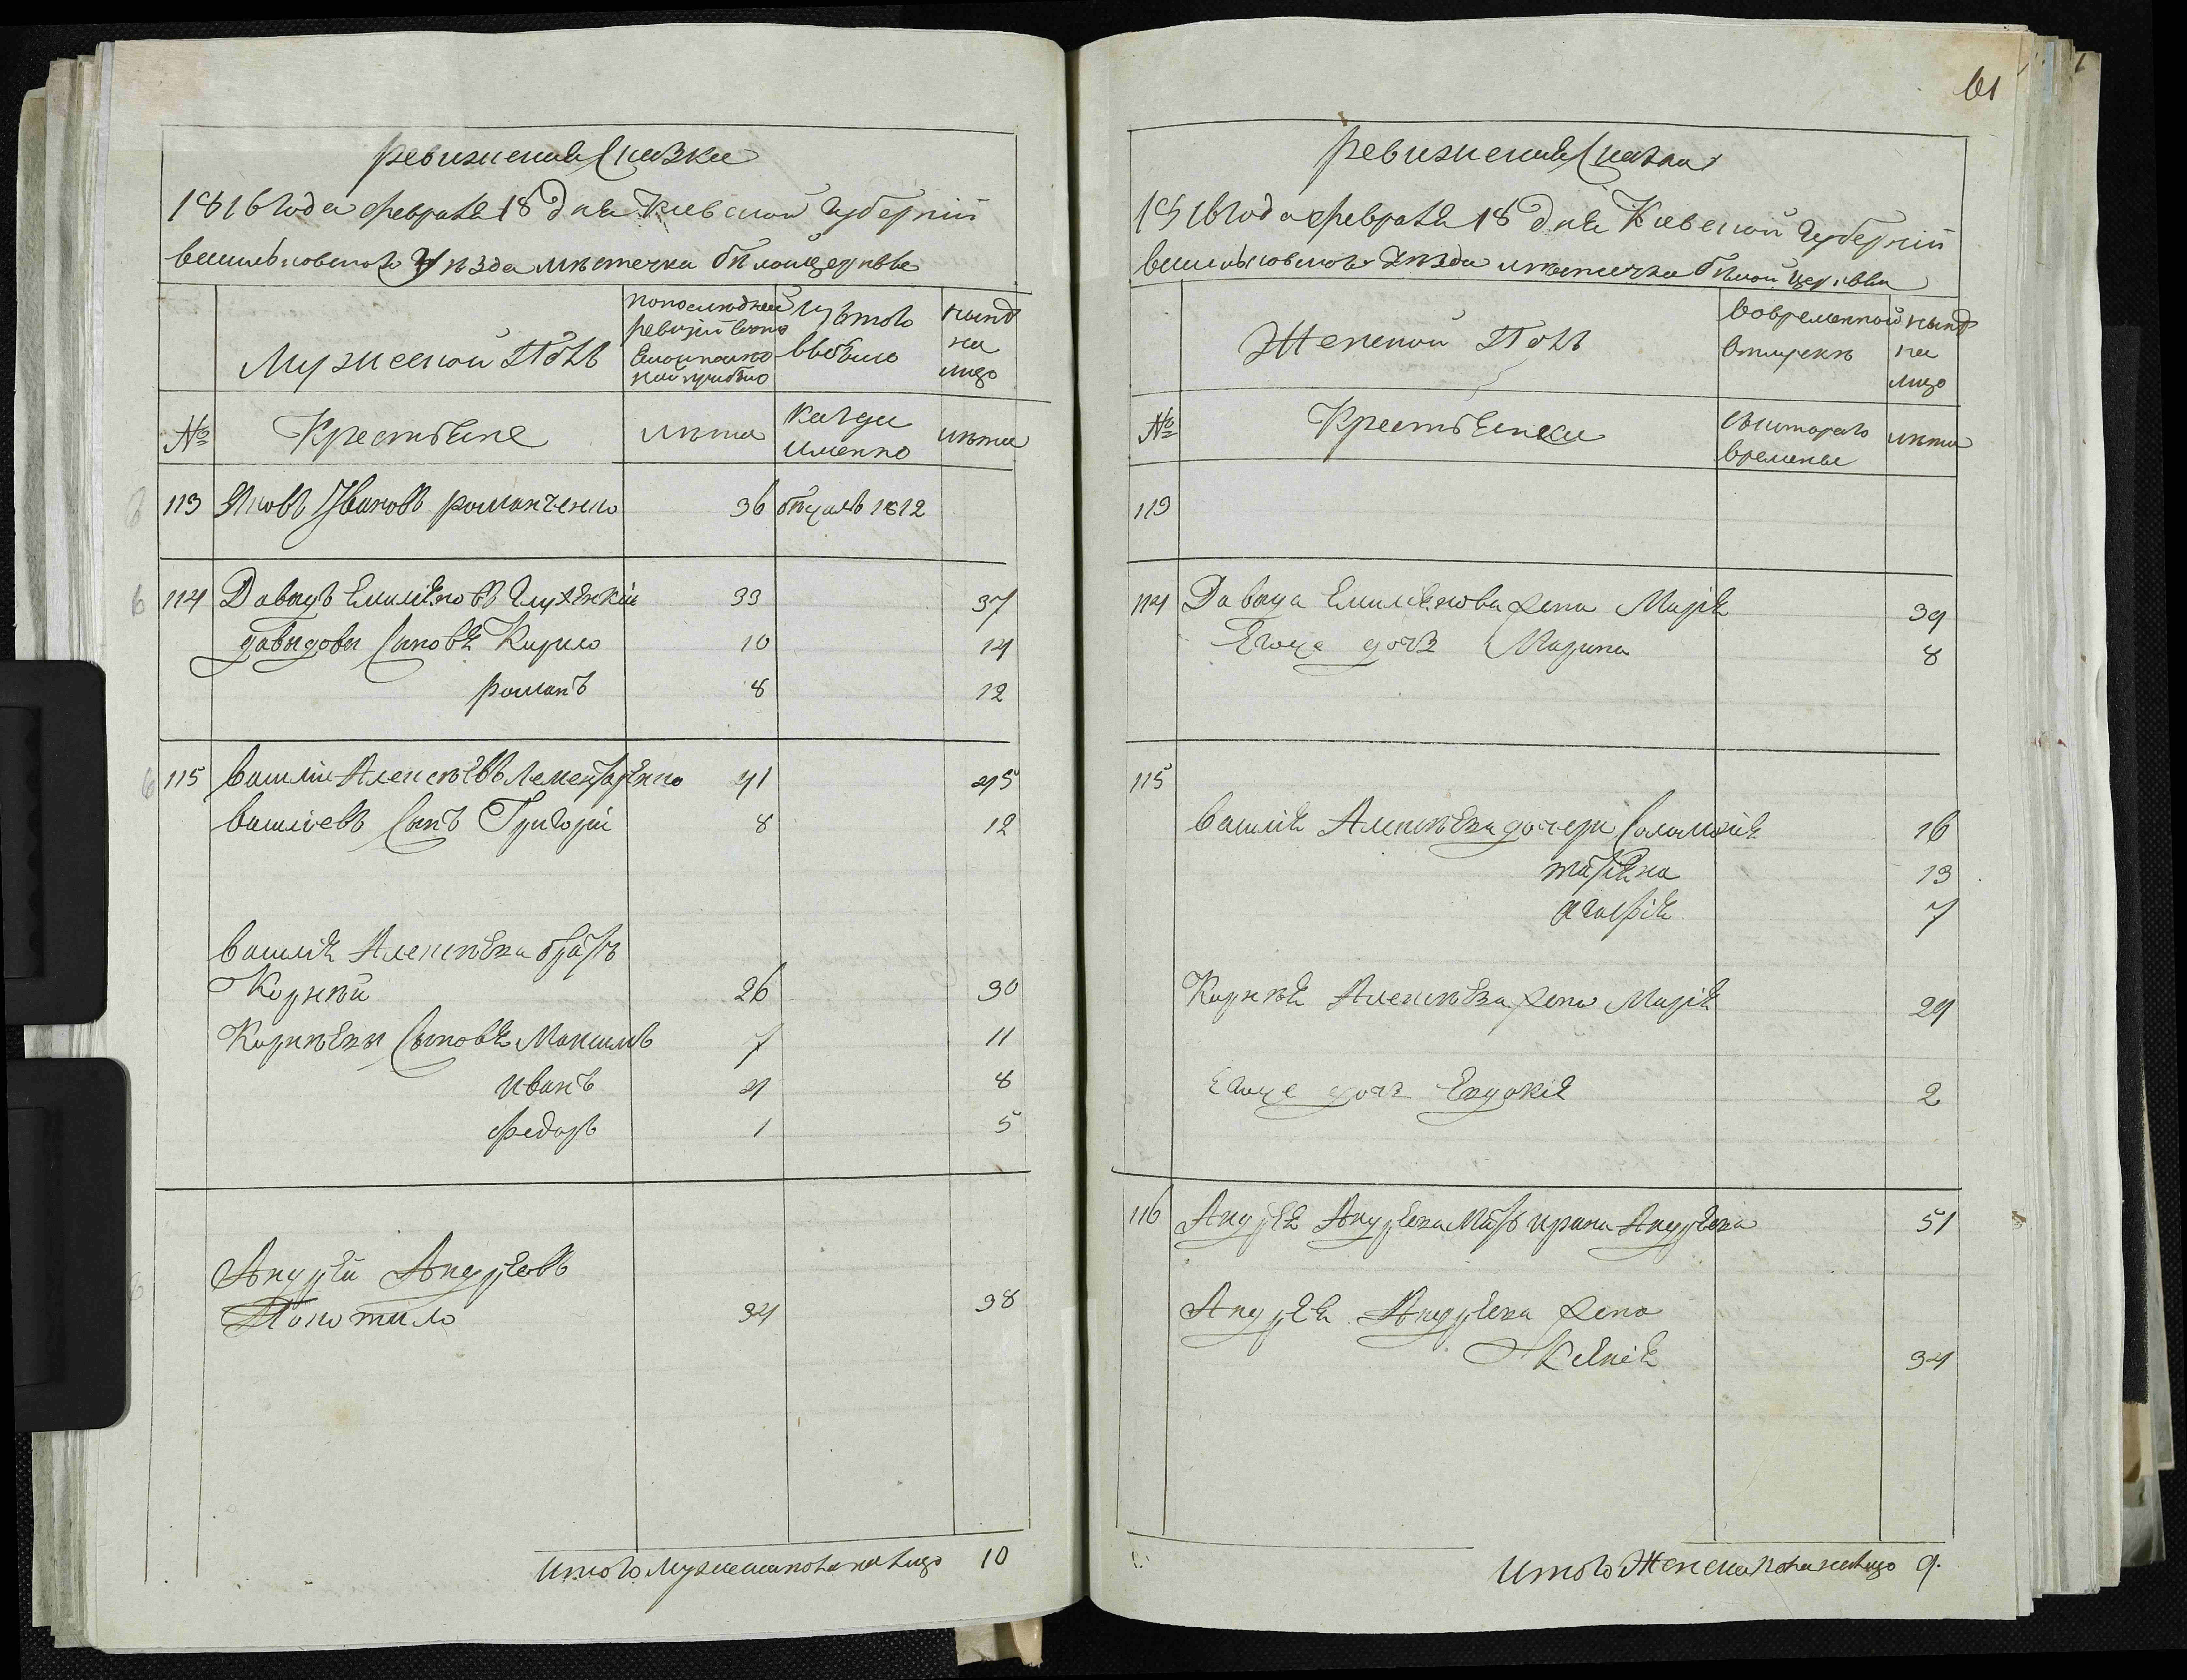 ревизская Сказка
1816 года февраля 18 дня Киевской Губернии
васильковского Уезда местечка белойцеркви
Мужеской Полъ
По последней ревизии состояло и после оной прибыло
Изъ того выбыло
ныне на лицо
№ Крестьяне
лета
когда именно
лета
113 Яковъ Ивановъ романченко 36 бѣжалъ 1812
114 Давыдъ Емиляновъ 33 37
давыдовы Сыновя Кирило 10 14
романъ 8 12
115 василій Алексѣевъ 41 45
василіевъ Сынъ Григорій 8 12
василія Алексѣева братъ
Корнѣй 26 30
Корнѣевы Сыновя Максимъ 7 11
иванъ 4 8
федоръ 1 5
Андрей Андреевъ
34 38
Итого Мужеска пола на лицо 10
61
ревизская Сказка
1816 года февраля 18 дня Киевской Губерніи
васильковского Уезда местечка белой Церкви
Женской Полъ
Во временной отлучкѣ
ныне на лицо
№ Крестьянки
съ котораго времени
лета
113
114 Давыда Емилянова жена Марія 39
Егоже дочь Марина 8
115
василія Алексѣева дочери Саломія 16
татіяна 13
агафія 7
Корнѣя Алексѣева жена Марія 29
Егоже дочь Евдокія 2
116 Андрея Андреева Мать ирина Андреева 51
Андрея Андреева жена
Ксенія 34
Итого Женска пола на лицо 9.